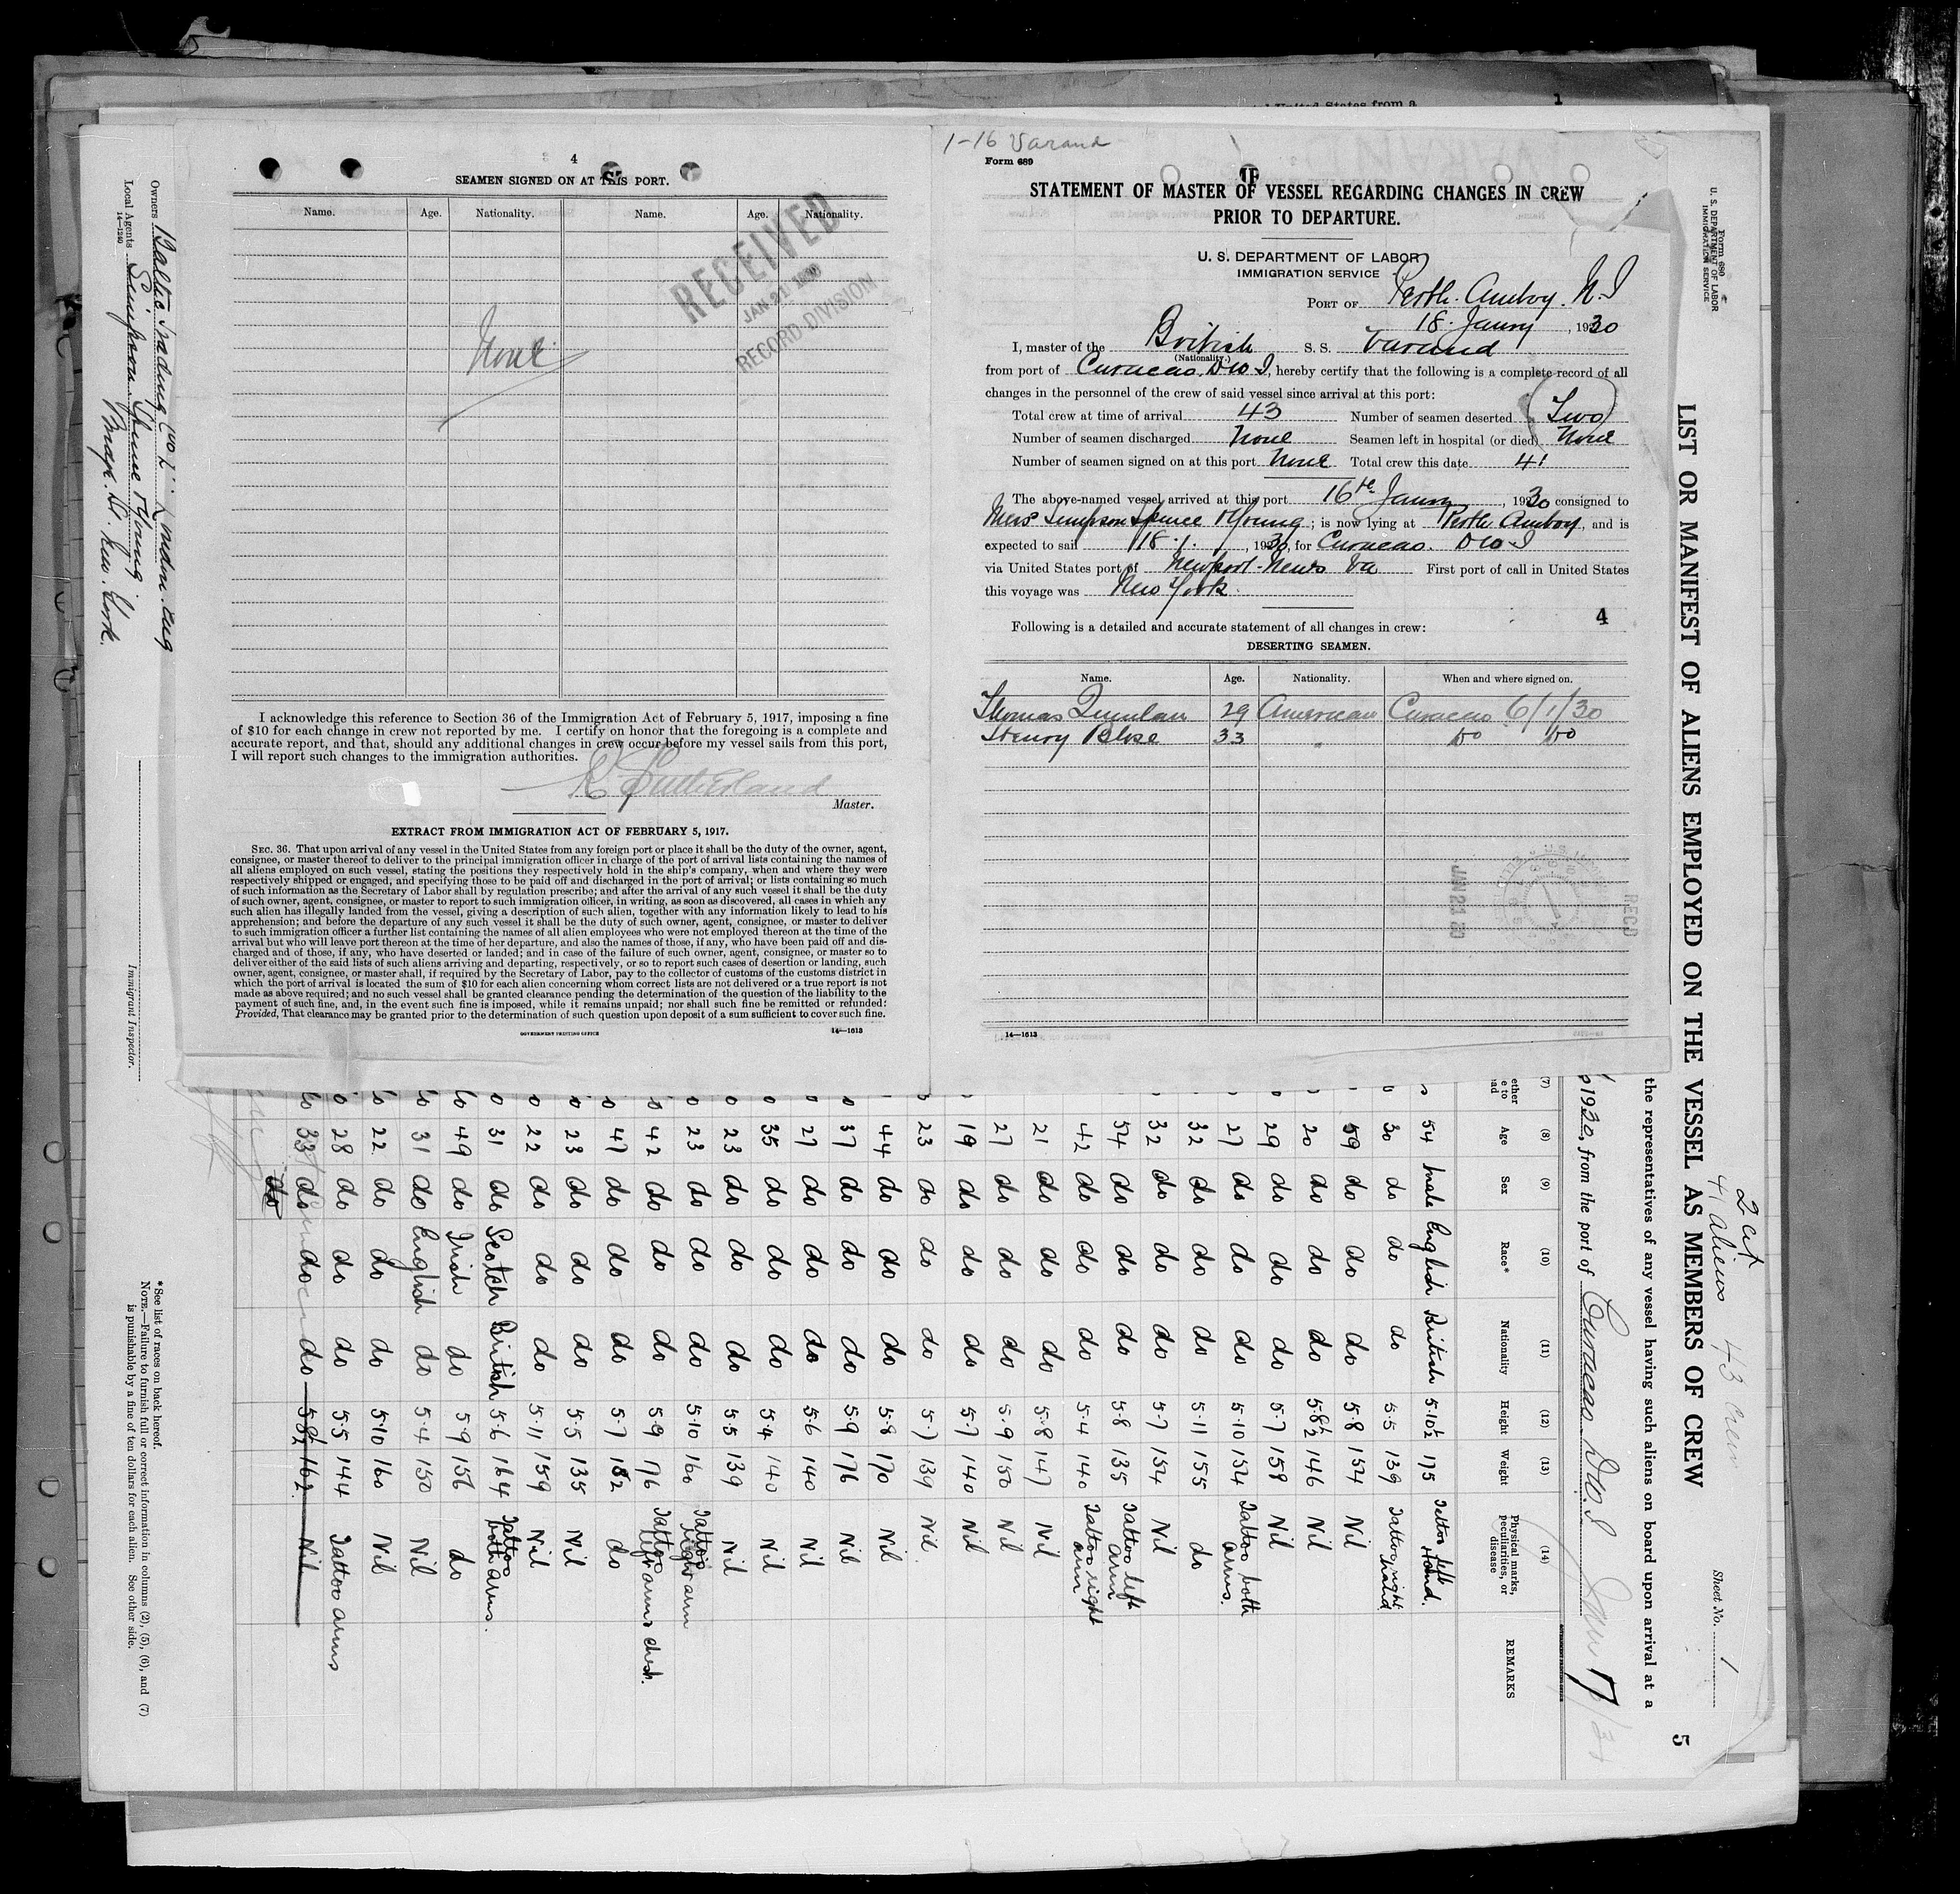 4
SEAMEN SIGNED ON AT THIS PORT.
Name. Age. Nationality. Name. Age. Nationality.
RECEIVED
JAN 21 1930
RECORD DIVISION
None
I acknowledge this reference to Section 36 of the Immigration Act of February 5, 1917, imposing a fine
of $10 for each change in crew not reported by me. I certify on honor that the foregoing is a complete and
accurate report, and that, should any additional changes in crew occur before my vessel sails from this port,
I will report such changes to the immigration authorities.
R Sutherland
Master.
EXTRACT FROM IMMIGRATION ACT OF FEBRUARY 5, 1917.
SEC. 36. That upon arrival of any vessel in the United States from any foreign port or place it shall be the duty of the owner, agent,
consignee, or master thereof to deliver to the principal immigration officer in charge of the port of arrival lists containing the names of
all aliens employed on such vessel, stating the positions they respectively hold in the ship's company, when and where they were
respectively shipped or engaged, and specifying those to be paid off and discharged in the port of arrival; or lists containing so much
of such information as the Secretary of Labor shall by regulation prescribe; and after the arrival of any such vessel it shall be the duty
of such owner, agent, consignee, or master to report to such immigration officer, in writing, as soon as discovered, all cases in which any
such alien has illegally landed from the vessel, giving a description of such alien, together with any information likely to lead to his
apprehension; and before the departure of any such vessel it shall be the duty of such owner, agent, consignee, or master to deliver
to such immigration officer a further list containing the names of all alien employees who were not employed thereon at the time of the
arrival but who will leave port thereon at the time of her departure, and also the names of those, if any, who have been paid off and dis-
charged and of those, if any, who have deserted or landed; and in case of the failure of such owner, agent, consignee, or master so to
deliver either of the said lists of such aliens arriving and departing, respectively, or so to report such cases of desertion or landing, such
owner, agent, consignee, or master shall, if required by the Secretary of Labor, pay to the collector of customs of the customs district in
which the port of arrival is located the sum of $10 for each alien concerning whom correct lists are not delivered or a true report is not
made as above required; and no such vessel shall be granted clearance pending the determination of the question of the liability to the
payment of such fine, and, in the event such fine is imposed, while it remains unpaid; nor shall such fine be remitted or refunded:
Provided, That clearance may be granted prior to the determination of such question upon deposit of a sum sufficient to cover such fine.
GOVERNMENT PRINTING OFFICE 14—1613
1-16 Varand
Form 689
STATEMENT OF MASTER OF VESSEL REGARDING CHANGES IN CREW
PRIOR TO DEPARTURE.
U. S. DEPARTMENT OF LABOR
IMMIGRATION SERVICE
PORT OF Perth. Amboy. N. J
18. Janry, 1930
I, master of the British S. S. Varand
(Nationality.)
from port of Curacao. D W I, hereby certify that the following is a complete record of all
changes in the personnel of the crew of said vessel since arrival at this port:
Total crew at time of arrival 43 Number of seamen deserted Two
Number of seamen discharged None Seamen left in hospital (or died) None
Number of seamen signed on at this port None Total crew this date 41
The above-named vessel arrived at this port 16th Janry, 1930 consigned to
Mers Simpson Spence & Young; is now lying at Perth Amboy, and is
expected to sail 18. 1., 1930, for Curacao. D W I
via United States port of Newport-News Va First port of call in United States
this voyage was New York.
4
Following is a detailed and accurate statement of all changes in crew:
DESERTING SEAMEN.
Name. Age. Nationality. When and where signed on.
Thomas Quinlan 29 American Curacao 6/1/30
Henry Blose 33 " Do Do
14—1613
JAN 21 30
RECD
Form 689
U. S. DEPARTMENT OF LABOR
IMMIGRATION SERVICE
2 cit
41 aliens 43 crew
Sheet No. 1
5
LIST OR MANIFEST OF ALIENS EMPLOYED ON THE VESSEL AS MEMBERS OF CREW
the representatives of any vessel having such aliens on board upon arrival at a
1930, from the port of Curacao. D.W.I Jan 17/30
(7) (8) (9) (10) (11) (12) (13) (14)
Age Sex Race* Nationality Height Weight Physical marks, peculiarities, or disease REMARKS
54 male English British 5.10½ 175 Tattoo left Hand.
30 do do do 5.5 139 Tattoo right hand
59 do do do 5.8 154 Nil
20 do do do 5.8½ 146 Nil
29 do do do 5.7 158 Nil
27 do do do 5.10 154 Tattoo both arms.
32 do do do 5.11 155 do
32 do do do 5.7 154 Nil
54 do do do 5.8 135 Tattoo left arm
42 do do do 5.4 140 Tattoo right arm
21 do do do 5.8 147 Nil
27 do do do 5.9 150 Nil
19 do do do 5.7 140 Nil
23 do do do 5.7 139 Nil.
44 do do do 5.8 170 Nil
37 do do do 5.9 176 Nil
27 do do do 5.6 140 Nil
35 do do do 5.4 140 Nil
23 do do do 5.5 139 Nil
23 do do do 5.10 160 Tattoo right arm
42 do do do 5.9 176 Tattoo arms chest.
47 do do do 5.7 182 do
23 do do do 5.5 135 Nil
22 do do do 5.11 159 Nil
31 do Scotch British 5.6 164 Tattoo both arms.
49 do Irish do 5.9 156 do
31 do English do 5.4 150 Nil
22 do do do 5.10 160 Nil
28 do do do 5.5 144 Tattoo arms
33 do do do 5.8½ 162 Nil
do
Owners Baltic Trading Coy Ld. London. Eng
Local Agents Simpson. Spence & Young
14—1240
New. York.
Immigrant Inspector.
*See list of races on back hereof.
NOTE.—Failure to furnish full or correct information in columns (2), (5), (6), and (7)
is punishable by a fine of ten dollars for each alien. See other side.